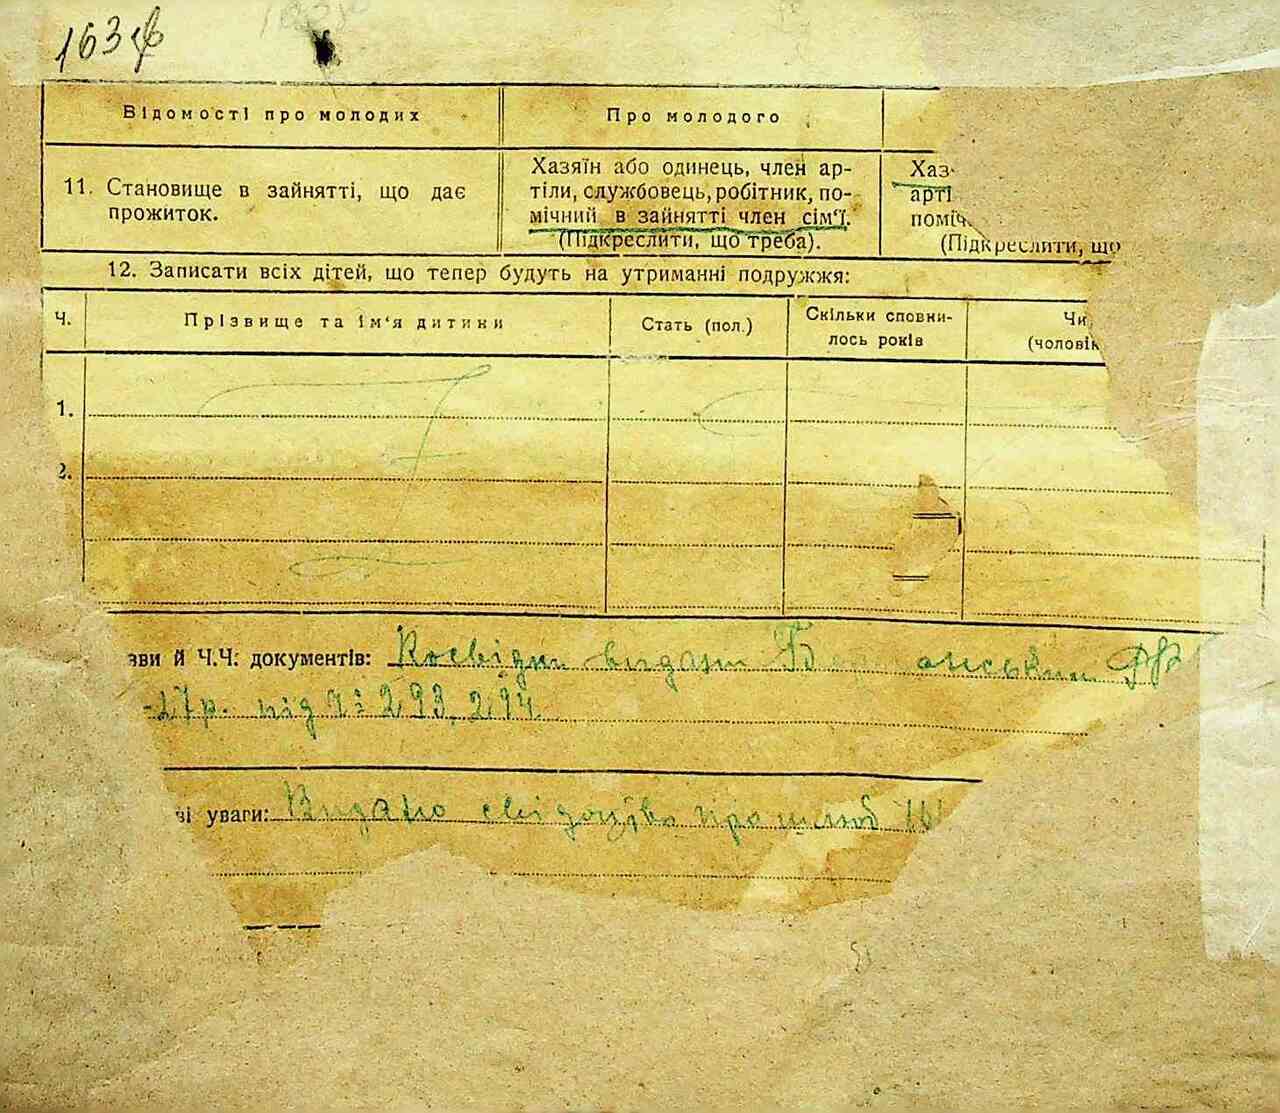 163
Відомості про молодих
Про молодого
11. Становище в зайнятті, що дає
прожиток.
Хазяїн або одинець, член ар-
тіли, службовець, робітник, по-
мічний в зайнятті член сім'ї.
(Підкреслити, що треба).
Хаз
арті
поміч
(Підкреслити, що
12. Записати всіх дітей, що тепер будуть на утриманні подружжя:
Ч.
Прізвище та ім'я дитини
Стать (пол.)
Скільки сповни-
лось років
Чи
(чоловік
1.
2.
зви й Ч.Ч: документів: видані
27 р. під 293, 294
ві уваги: Видано свідоцтво про шлюб